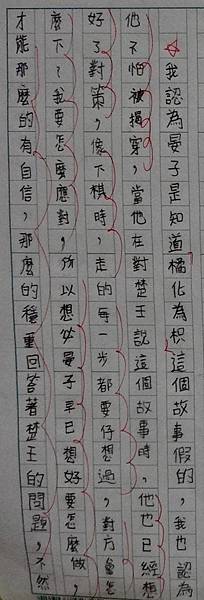 我認為晏子是知道橘化為枳這個故事假的，我也認為
他不怕被揭穿，當他在對楚王說這個故事時，他也已經想
好了對策，像下棋時，走的每一步都要仔想過，對方會怎
麼下，我要怎麼應對，所以想必晏子早已想好要怎麼做，
才能那麼的有自信，那麼的穩重回答著楚王的問題，不然